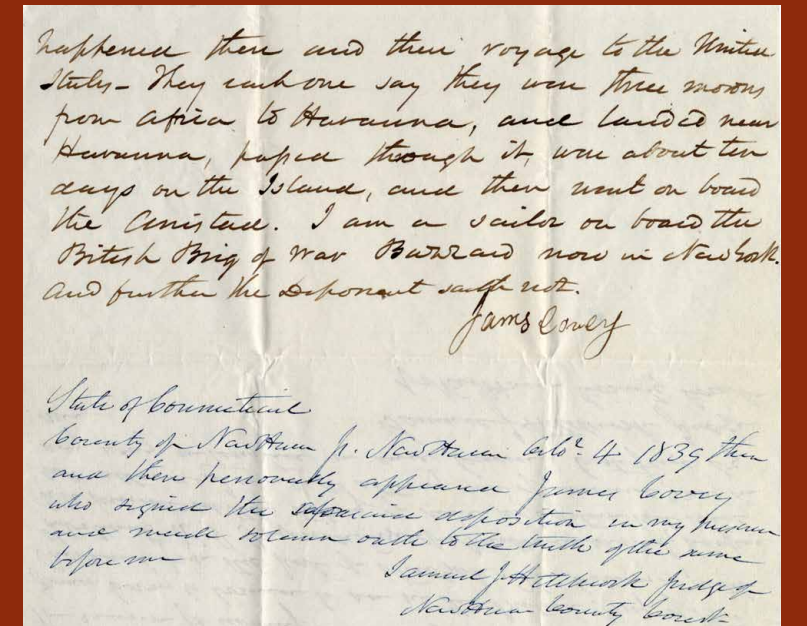 happened there and their voyage to the United
States - They each one say they were three moons
from Africa to Havanna, and landed near
Havanna, passed through it, were about ten
days on the Island, and then went on board
the Amistad. I am a sailor on board the
British Brig of War Buzzard now in New York.
And further the Deponent saith not.
James Covey
State of Connecticut
County of New Haven Js. New Haven Octo^r. 4 1839 then
and there personally appeared James Covey
who signed the aforesaid deposition in my presence
and made solemn oath to the truth of the same
before me
Samuel J Hitchcock Judge of
New Haven County Court